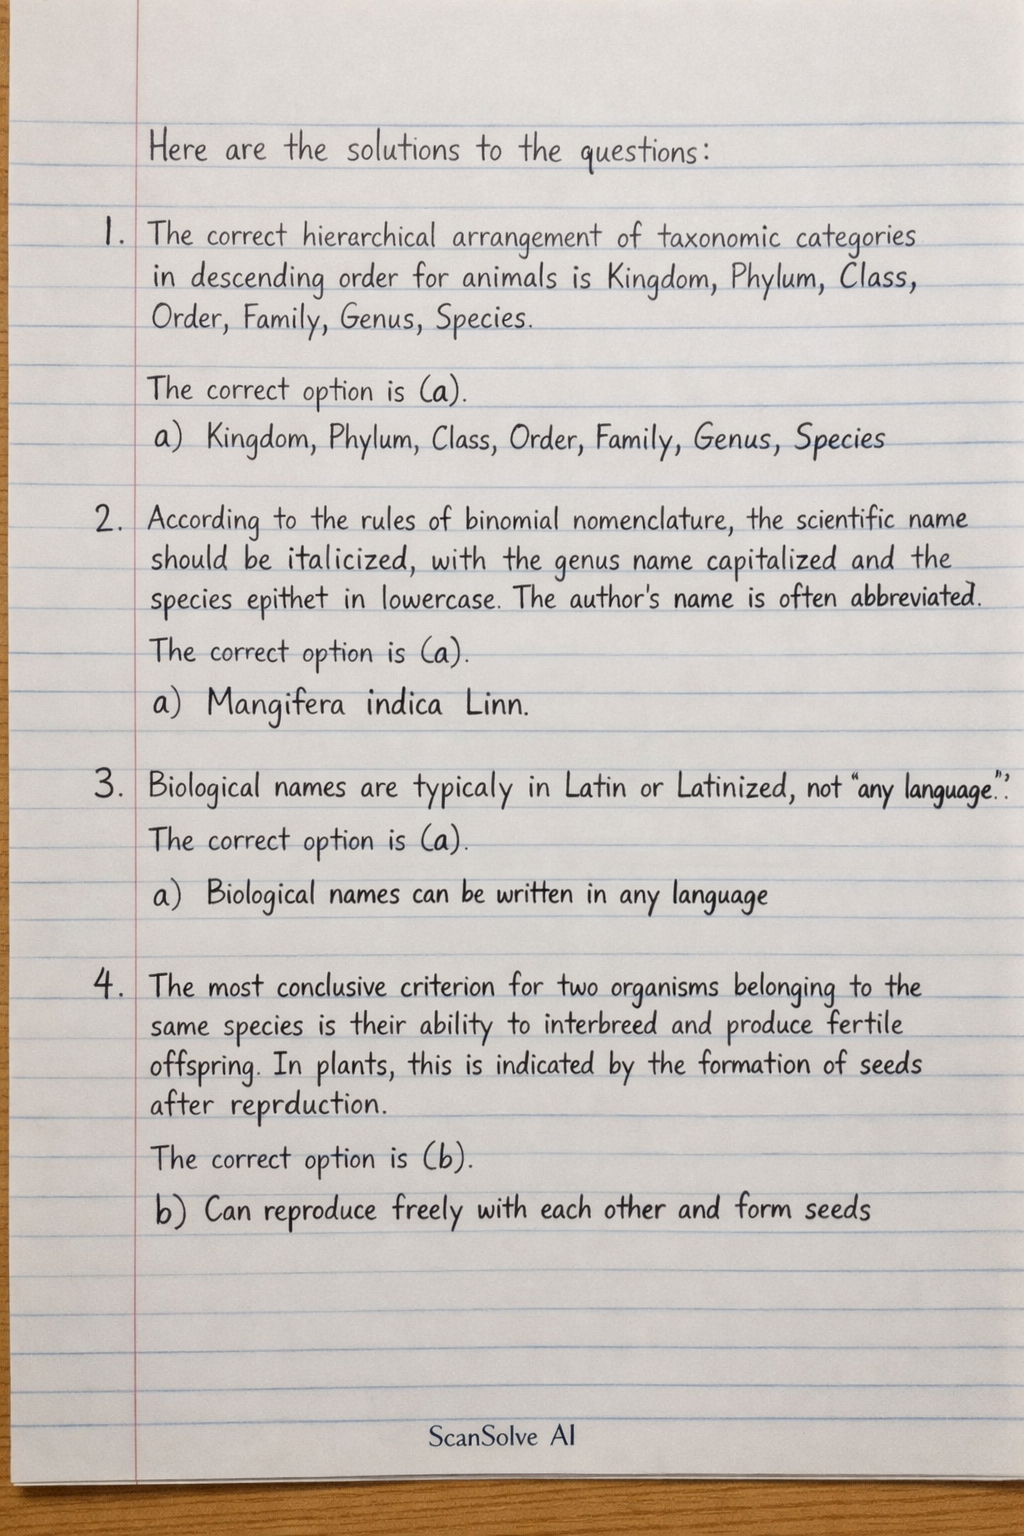 Here are the solutions to the questions:
1. The correct hierarchical arrangement of taxonomic categories
in descending order for animals is Kingdom, Phylum, Class,
Order, Family, Genus, Species.
The correct option is (a).
a) Kingdom, Phylum, Class, Order, Family, Genus, Species
2. According to the rules of binomial nomenclature, the scientific name
should be italicized, with the genus name capitalized and the
species epithet in lowercase. The author's name is often abbreviated.
The correct option is (a).
a) Mangifera indica Linn.
3. Biological names are typicaly in Latin or Latinized, not “any language.”.
The correct option is (a).
a) Biological names can be written in any language
4. The most conclusive criterion for two organisms belonging to the
same species is their ability to interbreed and produce fertile
offspring. In plants, this is indicated by the formation of seeds
after reprduction.
The correct option is (b).
b) Can reproduce freely with each other and form seeds
ScanSolve AI